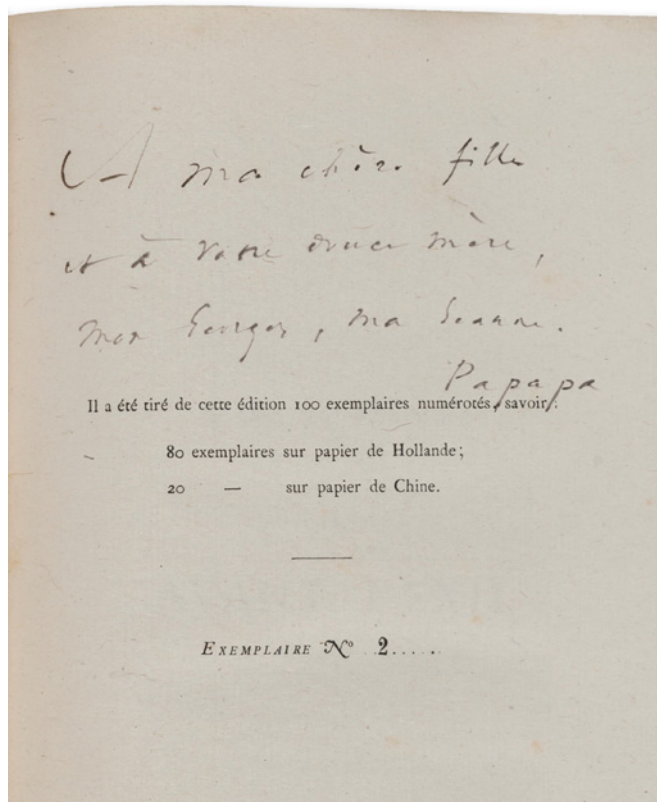 A ma chère fille
et à votre douce mère,
mon Georges, ma Jeanne.
Papapa
Il a été tiré de cette édition 100 exemplaires numérotés, savoir :
80 exemplaires sur papier de Hollande ;
20 — sur papier de Chine.
EXEMPLAIRE Nº 2.....